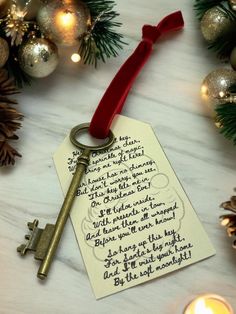 this key
Christmas cheer,
sprinkle of magic
bring me right here!
house has no chimney,
But don't worry, you see
This key lets me in
On Christmas Eve!
I'll tiptoe inside,
With presents in tow,
And leave them all wrapped
Before you'll ever know!
So hang up this key,
For Santa's big night,
And I'll visit your home
By the soft moonlight!